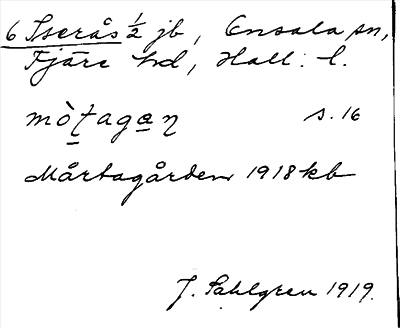 6 Iserås ½ jb, Onsala sn,
Fjäre hd, Hall. l.
mò̱taga̱n s. 16
Mårtagården 1918 kb
J. Sahlgren 1919.